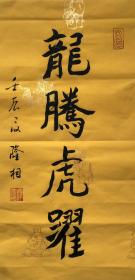 龍騰虎躍
壬辰之秋
隆相